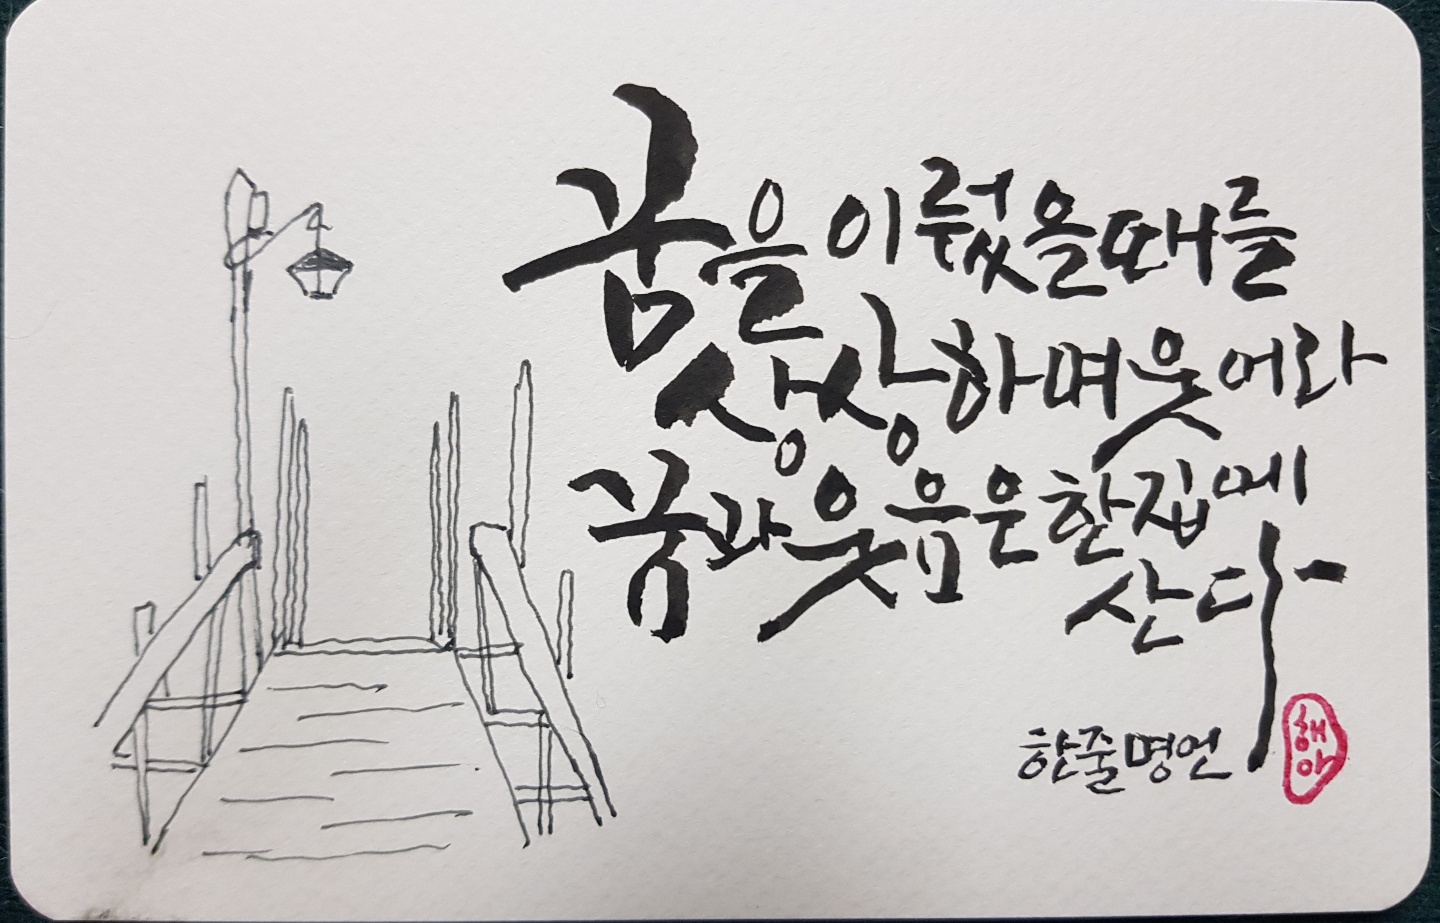 꿈을 이뤘을 때를
상상하며 웃어라
꿈과 웃음은 한집에
산다
한줄명언
해아